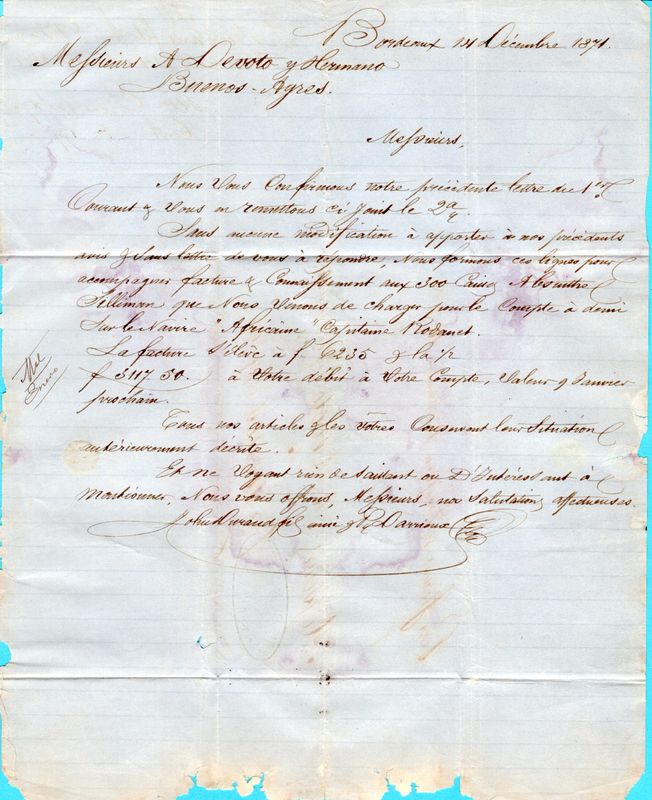 Bordeaux 14 Décembre 1871.
Messieurs A Devoto y Hermano
Buenos-Ayres.
Messieurs,
Nous Vous Confirmons notre précédente lettre du 1er
Courant & Vous en remettons ci joint le 2a
Sans aucune modification à apporter à nos précédents
avis & Sans lettre de vous à répondre, Nous formons ces lignes pour
accompagner facture & Connaissement aux 300 Caisses Absinthe
que Nous Venons de charger pour le Compte à demi
Sur le Navire "Africaine" Capitaine Rodanet.
La facture S'élève à f 6235 & la 1/2
f 3117.50. à Votre débit à Votre Compte, Valeur 9 Janvier
prochain.
Tous nos articles & les vôtres Conservent leur Situation
antérieurement décrite.
Et ne Voyant rien de Saillant ou D'Intéressant à
Mentionner, Nous vous offrons, Messieurs, nos Salutations affectueuses.
John Durand fils ainé & Darrieux
Enero